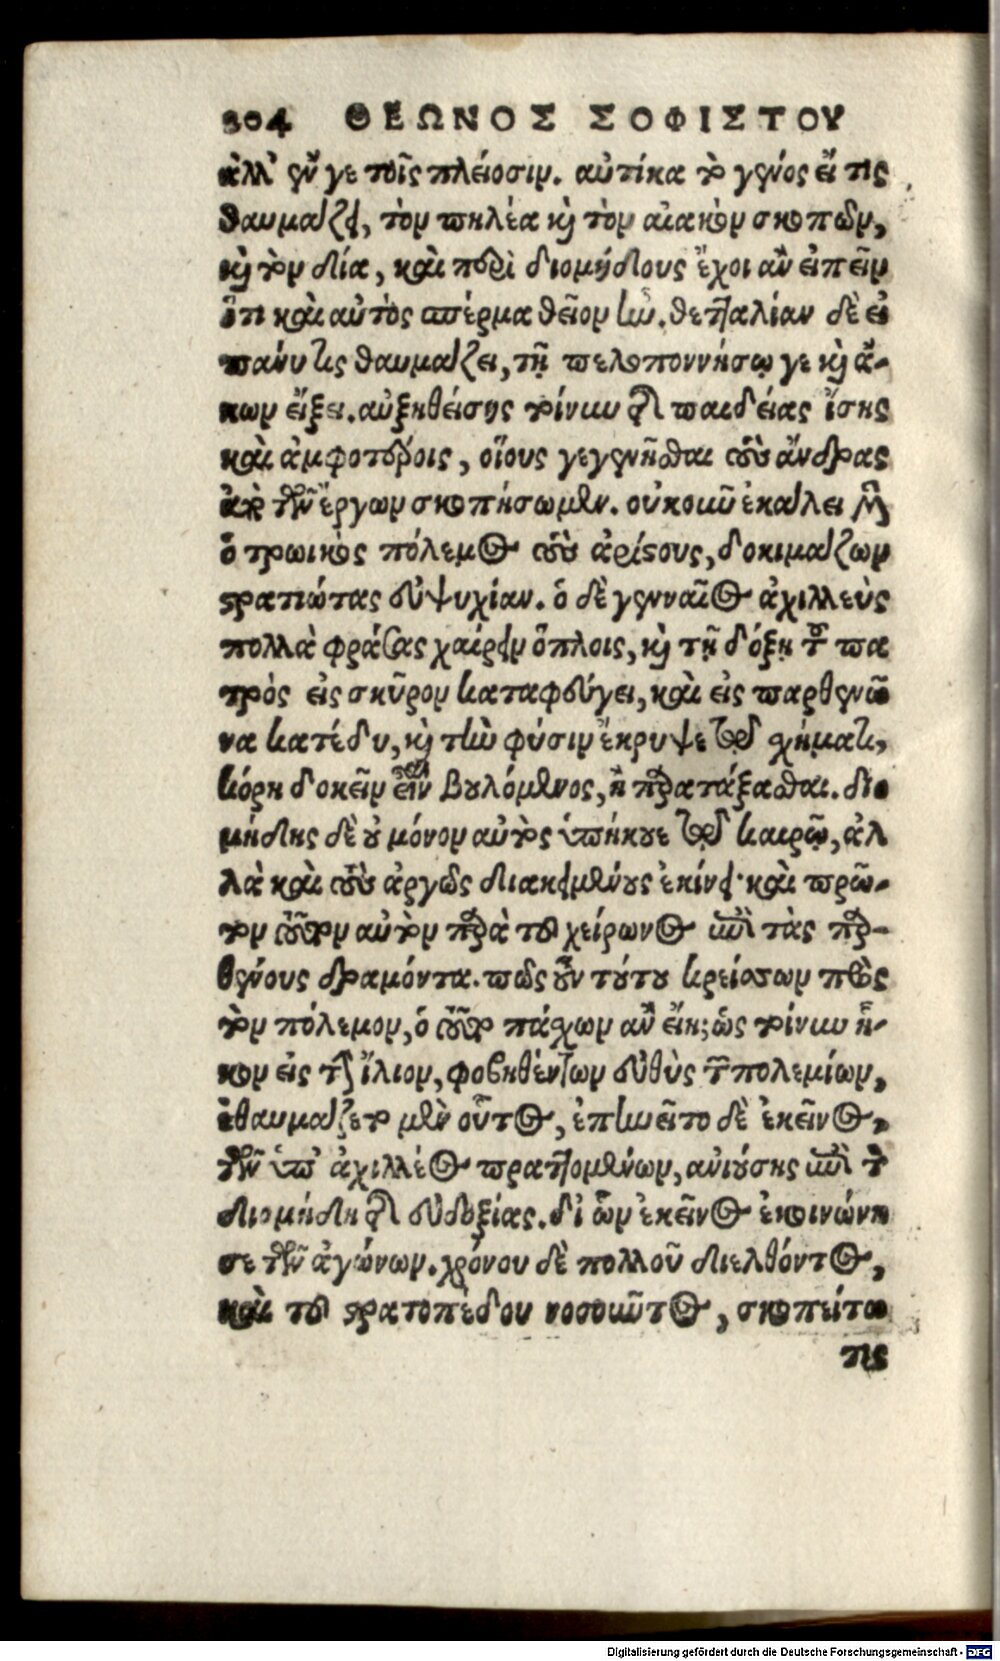 304 ΘΕΩΝΟΣ ΣΟΦΙΣΤΟΥ
ἀλλ' ἔν γε τοῖς πλείοσιν. αὐτίκα τὸ γένος εἴ τις
θαυμάζει, τὸν πηλέα καὶ τὸν αἰακὸν σκοπῶν,
καὶ τὸν δία, καὶ περὶ διομήδους ἔχοι ἂν εἰπεῖν
ὅτι καὶ αὐτὸς σπέρμα θεῖον ἦν. θετταλίαν δὲ εἰ
πάνυ τις θαυμάζει, τῇ πελοποννήσῳ γε καὶ ἄ-
κων εἴξει. αὐξηθείσης τοίνυν τῆς παιδείας ἴσης
καὶ ἀμφοτέροις, οἵους γεγενῆσθαι τοὺς ἄνδρας
ἀπὸ τῶν ἔργων σκοπήσωμεν. οὐκοῦν ἐκάλει μὲν
ὁ τρωικὸς πόλεμος τοὺς ἀρίστους, δοκιμάζων
στρατιώτας εὐψυχίαν. ὁ δὲ γενναῖος ἀχιλλεὺς
πολλὰ φράσας χαίρειν ὅπλοις, καὶ τῇ δόξῃ τοῦ πα
τρὸς εἰς σκῦρον καταφεύγει, καὶ εἰς παρθενῶ
να κατέδυ, καὶ τὴν φύσιν ἔκρυψε τῷ σχήματι,
κόρη δοκεῖν εἶναι βουλόμενος, ἢ παρατάξασθαι. διο
μήδης δὲ οὐ μόνον αὐτὸς ὑπήκουε τῷ καιρῷ, ἀλ
λὰ καὶ τοὺς ἀργῶς διακειμένους ἐκίνει· καὶ πρῶ-
τον τοῦτον αὐτὸν παρὰ τοῦ χείρωνος ἐπὶ τὰς παρ-
θένους δραμόντα. πῶς οὖν τούτου κρείσσων πρὸς
τὸν πόλεμον, ὁ τοῦτο πάσχων ἂν εἴη; ὡς τοίνυν ἧ-
κον εἰς τὴν ἴλιον, φοβηθέντων εὐθὺς τῶν πολεμίων,
ἐθαυμάζετο μὲν οὗτος, ἐπῃνεῖτο δὲ ἐκεῖνος,
τῶν ὑπ' ἀχιλλέος πραττομένων, ἀνιούσης ἐπὶ τὸν
διομήδη τῆς εὐδοξίας. δι' ὧν ἐκεῖνος ἐκοινώνη
σε τῶν ἀγώνων. χρόνου δὲ πολλοῦ διελθόντος,
καὶ τοῦ στρατοπέδου νοσοῦντος, σκοπείτω
τις
Digitalisierung gefördert durch die Deutsche Forschungsgemeinschaft - DFG